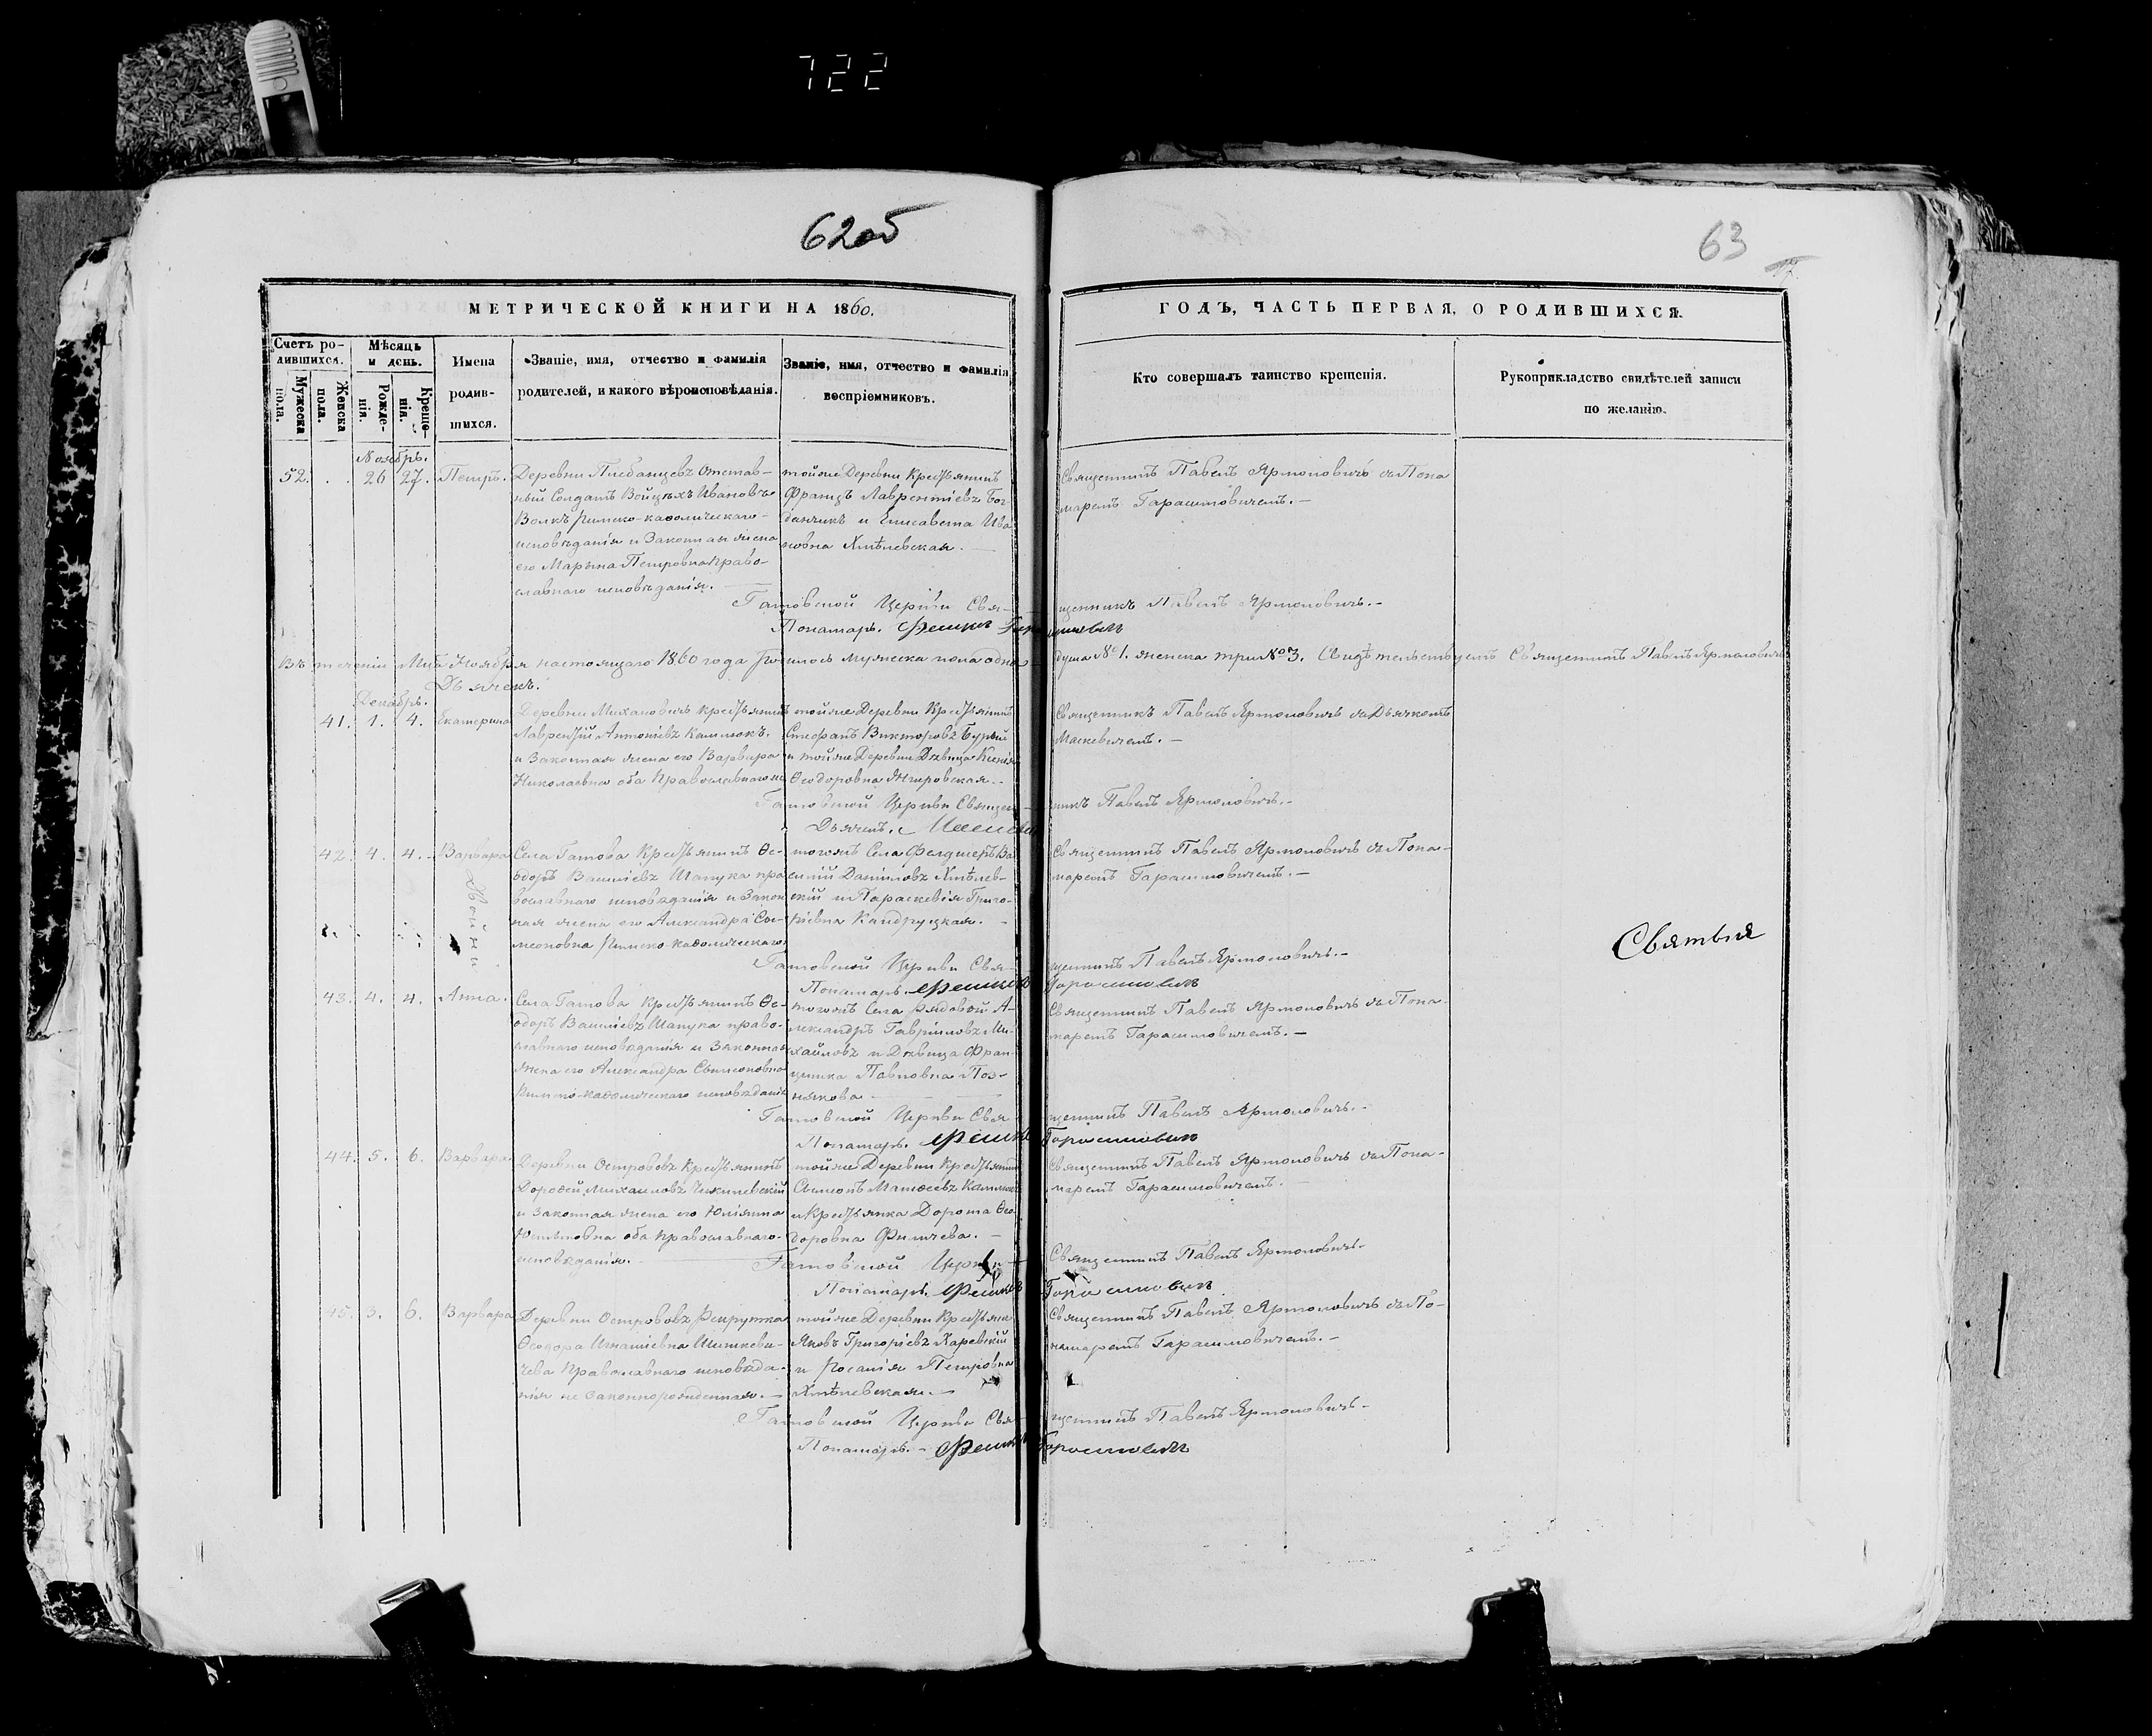 722
62об
63
МЕТРИЧЕСКОЙ КНИГИ НА 1860.
ГОДЪ, ЧАСТЬ ПЕРВАЯ, О РОДИВШИХСЯ.
Счетъ ро-
дившихся.
Мужеска
пола.
Женска
пола.
Мѣсяцъ
и день.
Рожде-
нія.
Креще-
нія.
Имена
родив-
шихся.
Званіе, имя, отчество и фамилія
родителей, и какого вѣроисповѣданія.
Званіе, имя, отчество и фамилія
воспріемниковъ.
Кто совершалъ таинство крещенія.
Рукоприкладство свидѣтелей записи
по желанію.
Ноябрь.
52. 26 27. Петръ.
Деревни Плебанцевъ Отстав-
ный Солдатъ Войцѣхъ Ивановъ
Волкъ Римско-католическаго
исповѣданія и Законная жена
его Марьяна Петровна Право-
славнаго исповѣданія.
тойже Деревни Крестьянинъ
Францъ Лаврентіевъ Бог-
данчикъ и Елисавета Ива
новна Хмѣлевская.
Священникъ Павелъ Ярмоловичъ съ Пона
маремъ Гарашмовичемъ.
Гатовской Церкви Свя-
щенникъ Павелъ Ярмоловичъ.
Понамарь.
Въ теченіи Мца Ноября настоящаго 1860 года родилось мужеска пола одна
душа № 1. женска три № 3. Свидѣтельствуетъ Священникъ Павелъ Ярмоловичъ
Дьячекъ.
Декабрь.
41. 1. 4. Екатерина
Деревни Михановичъ Крестьянинъ
Лаврентій Антоніевъ Калиюкъ.
и Законная жена его Варвара
Николаевна оба Православнаго
тойже Деревни Крестьянинъ
Стефанъ Викторовъ Бурый
и тойже Деревни Дѣвица Ксенія
Ѳеодоровна
Священникъ Павелъ Ярмоловичъ съ Дьячкомъ
Маскевичемъ.
Гатовской Церкви Священ-
никъ Павелъ Ярмоловичъ.
Дьячекъ.
42. 4. 4. Варвара
Двойни
Села Гатова Крестьянинъ Ѳе-
одоръ Василіевъ Шапука пра
вославнаго исповѣданія и Закон
ная жена его Александра Си-
меоновна Римско-католическаго
тогожъ Села Фелдшеръ Ва
силій Даниловъ Хмѣлев-
скій и Параскевія Григо-
ріевна Кандруцкая.
Священникъ Павелъ Ярмоловичъ съ Пона-
маремъ Гарашмовичемъ.
Святыя
Гатовской Церкви Свя-
щенникъ Павелъ Ярмоловичъ.
Понамарь.
43. 4. 4. Анна.
Села Гатова Крестьянинъ Ѳе-
одоръ Василіевъ Шапука право-
славнаго исповѣданія и Законная
жена его Александра Симеоновна
Римско-католическаго исповѣданія
тогожъ Села Рядовой А-
лександръ Гавріиловъ Ми-
хайловъ и Дѣвица Фран-
цишка Павловна Поз-
някова
Священникъ Павелъ Ярмоловичъ съ Пона-
маремъ Гарашмовичемъ.
Гатовской Церкви Свя
щенникъ Павелъ Ярмоловичъ.
Понамарь.
44. 5. 6. Варвара
Деревни Острововъ Крестьянинъ
Дороѳей Михаиловъ
и Законная жена его Юліянна
оба Православнаго
исповѣданія.
тойже Деревни Крестьянинъ
Симеонъ Матѳеевъ
и Крестьянка Дорота Ѳео
доровна Филичева.
Священникъ Павелъ Ярмоловичъ съ Пона-
маремъ Гарашмовичемъ.
Гатовской Церкви
Священникъ Павелъ Ярмоловичъ.
Понамарь.
45. 3. 6. Варвара
Деревни Острововъ Рекрутка
Ѳеодора Игнатіевна Шишкеви-
чева Православнаго исповѣда-
нія не Законнорожденная.
тойже Деревни Крестьяни
Яковъ Григоріевъ Харевскій
и Росалія Петровна
Хмѣлевская.
Священникъ Павелъ Ярмоловичъ съ По-
намаремъ Гарашмовичемъ.
Гатовской Церкви Свя-
щенникъ Павелъ Ярмоловичъ.
Понамарь.